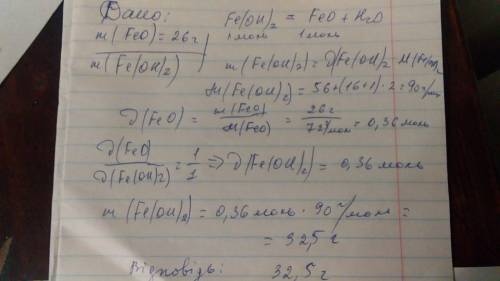 Дано: Fe(OH)₂ = FeO + H₂O
m(FeO) = 26г 1 моль 1 моль
m(Fe(OH)₂) m(Fe(OH)₂) = ν(Fe(OH)₂ · M(Fe(OH)₂
M(Fe(OH)₂) = 56+(16+1)·2 = 90 г/моль
ν(FeO) = m(FeO)/M(FeO) = 26г/72г/моль = 0,36 моль
ν(FeO)/ν(Fe(OH)₂) = 1/1 => ν(Fe(OH)₂) = 0,36 моль
m(Fe(OH)₂) = 0,36 моль · 90 г/моль =
= 32,5 г
Відповідь: 32,5 г